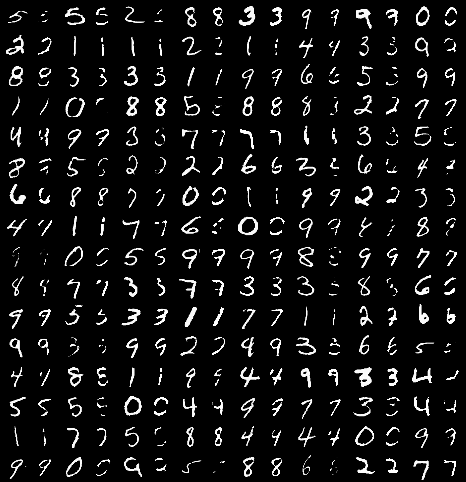 5 5 5 5 2 2 8 8 3 3 9 9 9 9 0 0
2 2 1 1 1 1 2 2 1 1 4 4 3 3 9 2
8 8 3 3 3 3 1 1 9 9 6 6 5 5 9 9
1 1 0 0 8 8 5 5 8 8 8 8 2 2 7 7
4 4 9 9 3 3 7 7 7 7 1 1 3 3 5 5
8 8 5 5 2 2 2 2 6 6 3 3 6 6 4 4
6 6 8 8 7 7 0 0 1 1 9 9 2 2 3 3
4 4 1 1 7 7 6 6 0 0 9 9 4 4 8 8
9 9 0 0 5 5 9 9 9 9 8 8 9 9 7 7
8 8 9 9 3 3 7 7 3 3 3 3 8 8 6 6
9 9 5 5 3 3 1 1 7 7 1 1 2 2 6 6
9 9 3 3 9 9 2 2 9 9 3 3 6 6 5 5
4 4 8 8 1 1 9 9 4 4 9 9 3 3 4 4
5 5 5 5 0 0 4 4 9 9 7 7 3 3 4 4
1 1 7 7 5 5 8 8 4 4 4 4 0 0 9 9
9 9 0 0 9 9 5 5 8 8 6 6 2 2 7 7